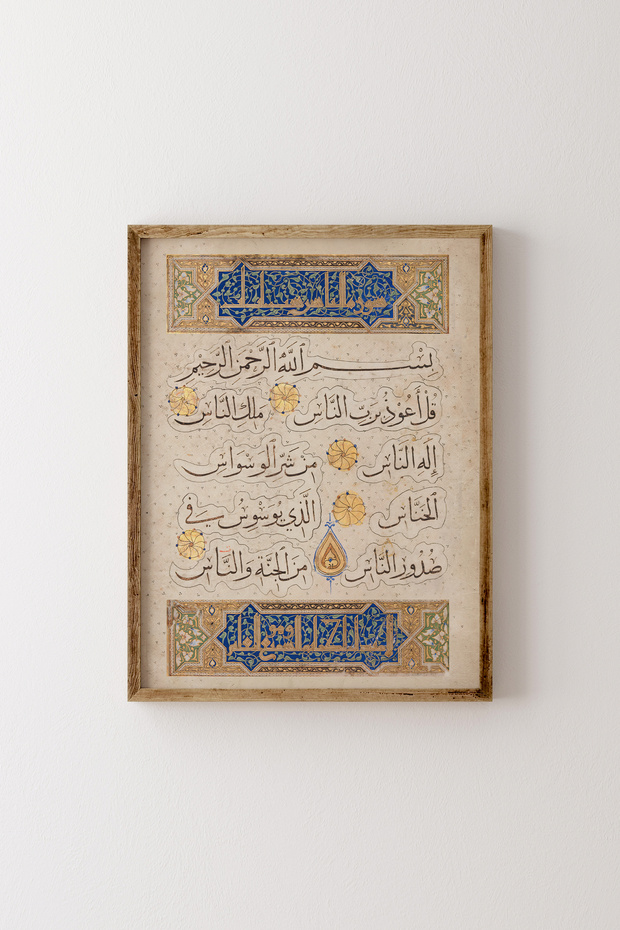 بِسْمِ اللَّهِ الرَّحْمَٰنِ الرَّحِيمِ
قُلْ أَعُوذُ بِرَبِّ النَّاسِ مَلِكِ النَّاسِ
إِلَٰهِ النَّاسِ مِن شَرِّ الْوَسْوَاسِ
الْخَنَّاسِ الَّذِي يُوَسْوِسُ فِي
صُدُورِ النَّاسِ مِنَ الْجِنَّةِ وَالنَّاسِ